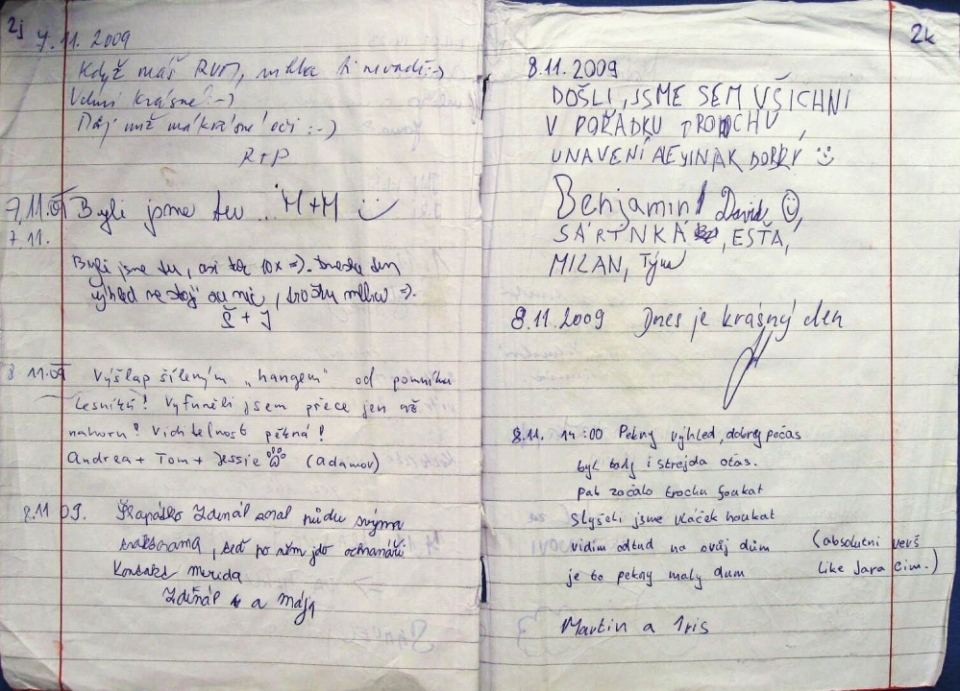 2j
7.11. 2009
Když máš RUM, mlha ti nevadí :-)
Velmi krásné! :-)
Můj muž má krásné oči :-)
R+P
7.11.09 Byli jsme tu .. M+M
7.11.
Byli jsme tu, asi tak 10x =). Dneska ten
výhled nestojí za nic, trošku mlha =).
Š + J
8 11.09 Výšlap šíleným "hangem" od pomníku
Lesníků! Vyfuněli jsem přece jen až
nahoru! Viditelnost pěkná!
Andrea + Tom + Jessie (Adamov)
8.11 09. Zdinál zoral půdu svýma
, teď po něm jdo ochranáři
Kontakt merida
Zdiňál a máj1
2k
8.11.2009
DOŠLI JSME SEM VŠICHNI
V POŘÁDKU TROCHU,
UNAVENÍ ALE JINAK DOBRY
Benjamin David,
SÁRINKÁ, ESŤA,
MILAN, Týna
8.11.2009 Dnes je krášný den
8.11. 14:00 Pekny výhled, dobrej počas
byl tady i strejda otas.
pak začalo trochu foukat
Slyšeli jsme vláček houkat
vidim odtud na svůj dům (absolutní verš
je to pekny maly dum like Jara Cim.)
Martin a Iris